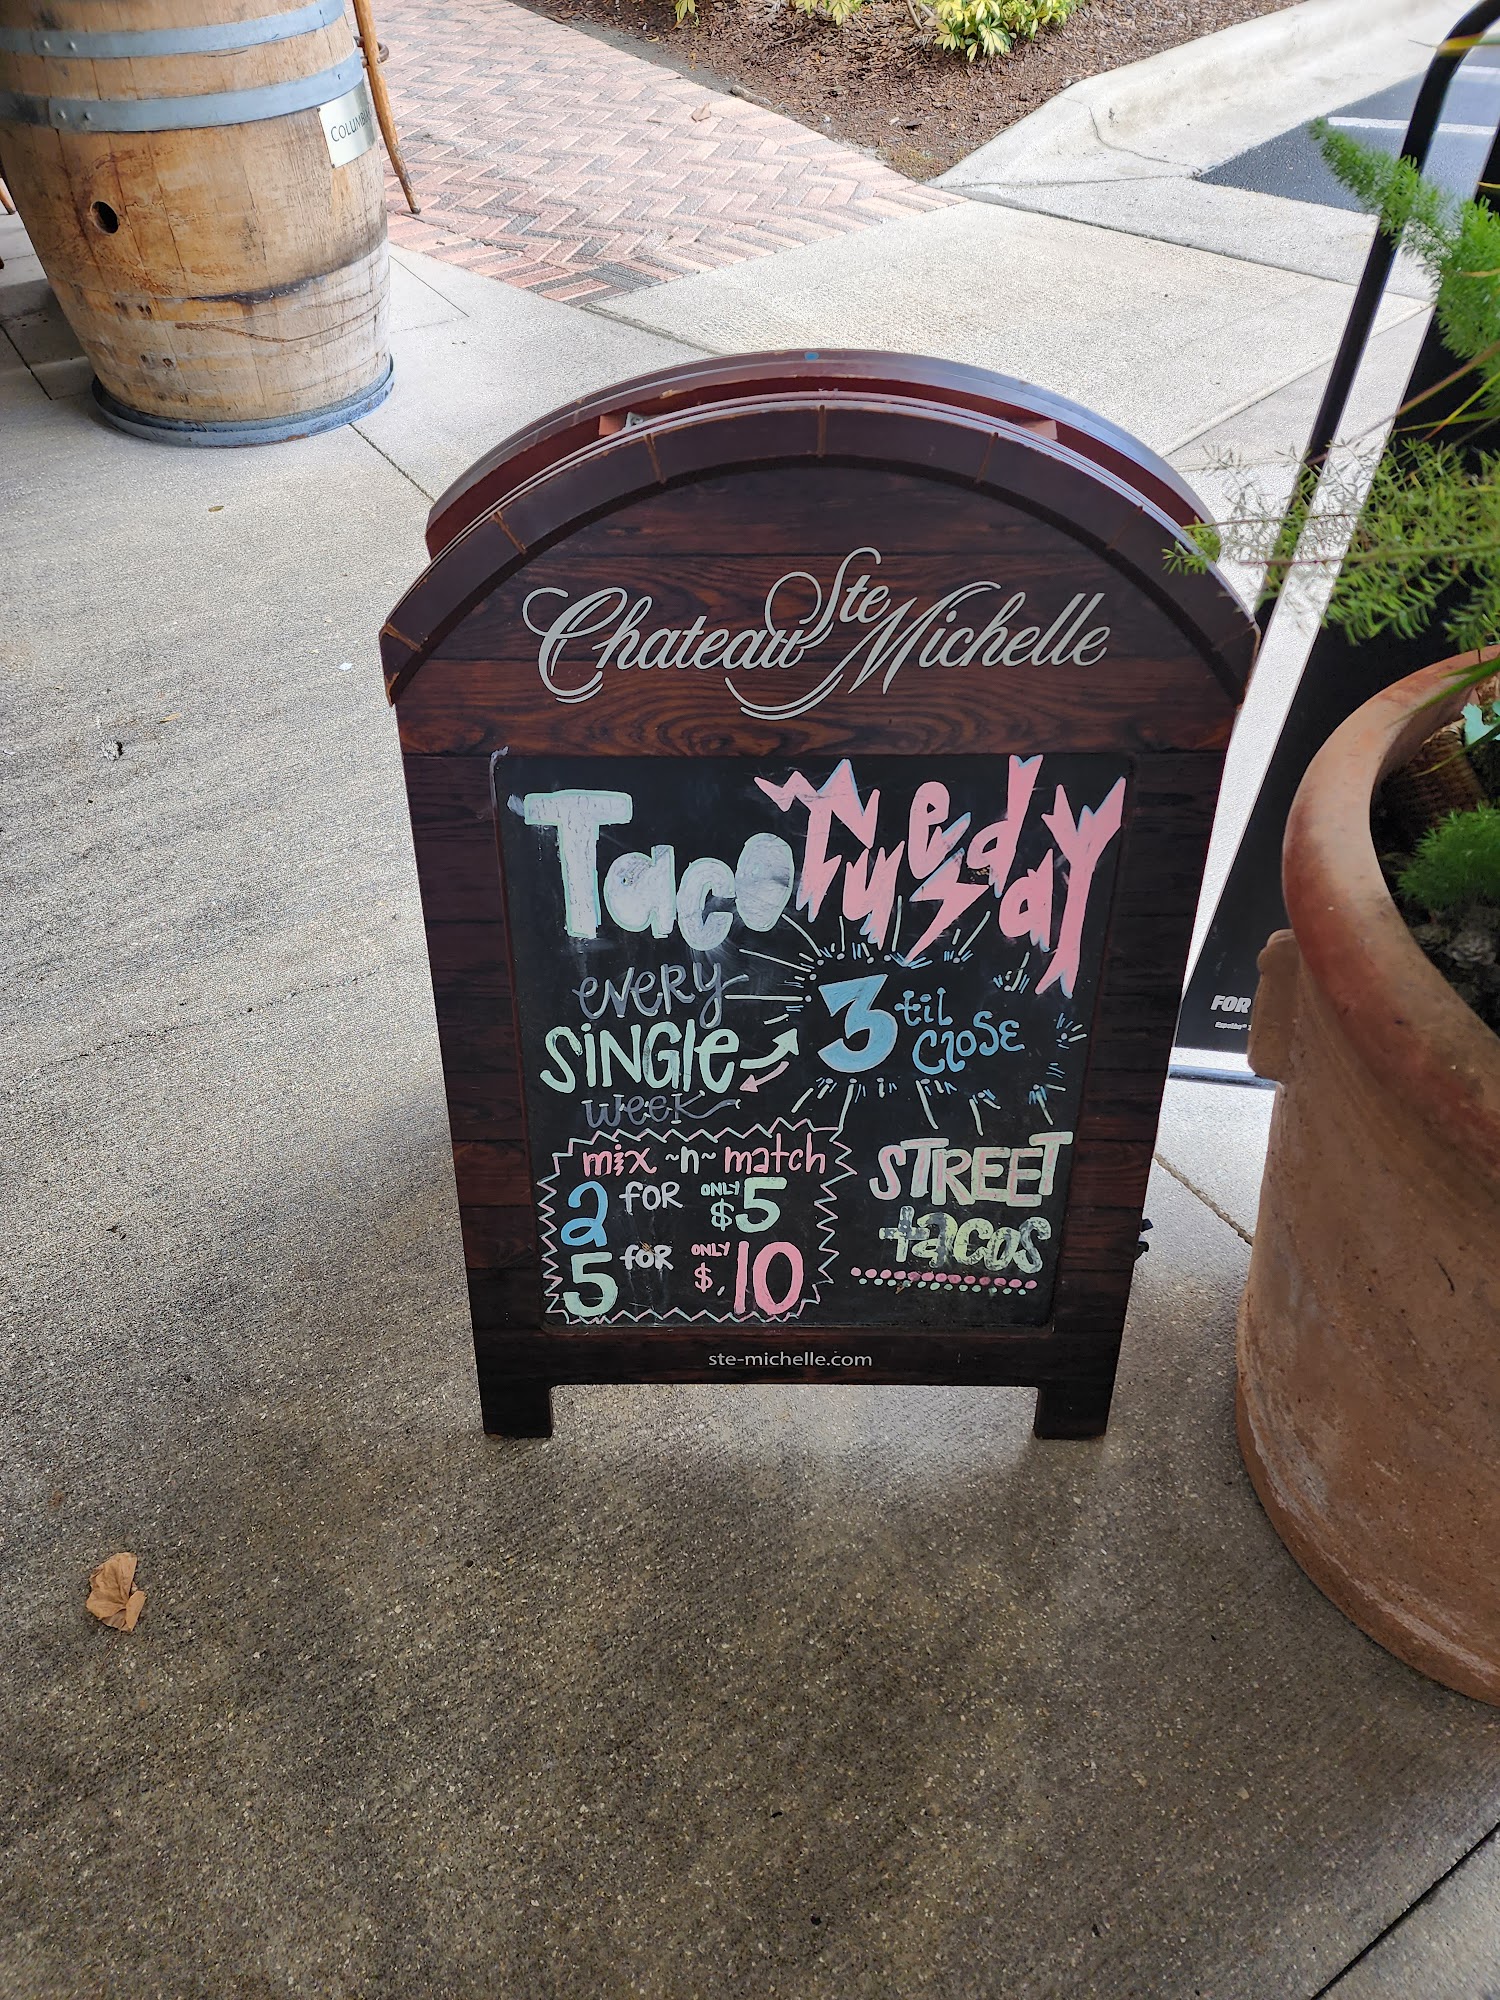 COLUMB
Chateau Ste Michelle
Taco Tuesday
every
SiNGle
week
3 til
close
mix ~n~ match
2 for ONLY $5
5 for ONLY $10
STREET
tacos
ste-michelle.com
FOR